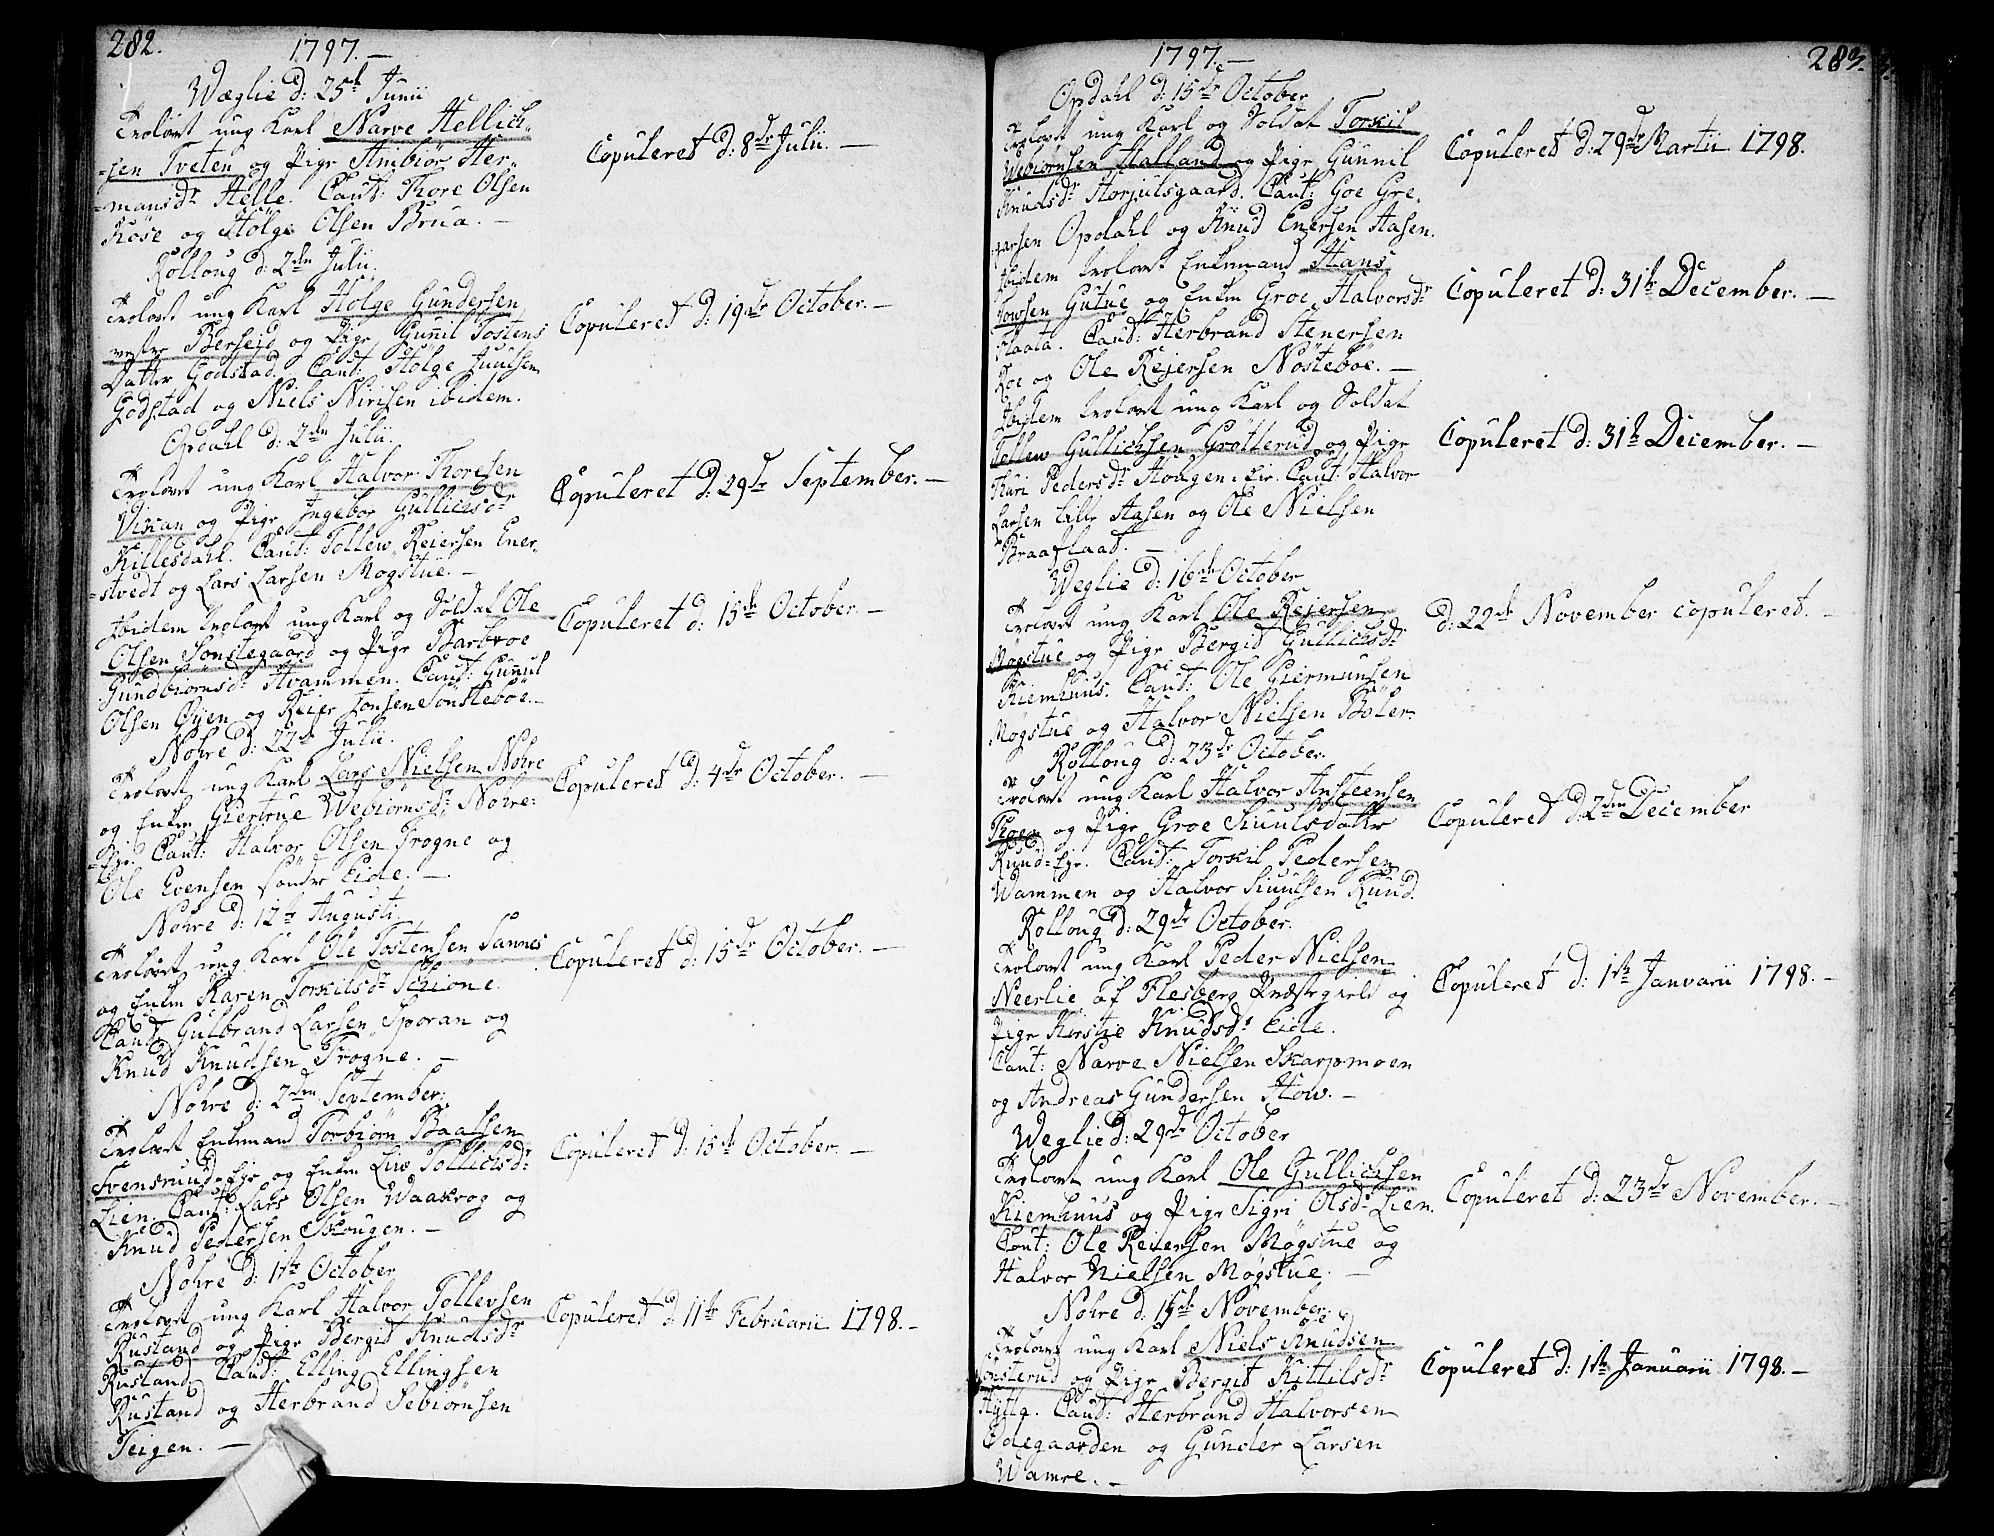 282.
1797.—
Wæglie d: 25de Junii
Trolovt ung Karl Narve Hellich-
-sen Tveten og Pige Ambiør Her-
-mansdr Helle. Caut: Thore Olsen
Kose og Holge Olsen Brua.—
Copuleret d: 8de Julii.—
Rollaug d: 2den Julii.
Trolovt ung Karl Holge Gundersen
vestre Berseid og Pige Gunil Tostens
Datter Godstad. Caut: Holge Juulsen
Godstad og Niels Nirisen ibidem.
Copuleret d: 19de October.—
Opdahl d: 2den Julii.
Trolovt ung Karl Halvor Thoresen
Viscan og Pige Ingebor Gullichsdr
Killesdahl. Caut: Tollew Reiersen Ener-
-stvedt og Lars Larsen Mogstue.—
Copuleret d: 29de September.—
Ibidem trolovt ung Karl og Soldat Ole
Olsen Sønstegaard og Pige Barbroe
Gundbiørnsdr Hvammen. Caut: Gunnul
Olsen Øyen og Reier Jonsen Sønsteboe.—
Copuleret d: 15de October.—
Nohre d: 22de Julii.
Trolovt ung Karl Lars Nielsen Nohre
og Enken Giertrue Webiørnsdr Nohre-
-Eje. Caut: Halvor Olsen Frogne og
Ole Evensen søndre Eide.—
Copuleret d: 4de October.—
Nohre d: 12te Augusti
Trolovt ung Karl Ole Tostensen Sannes
og Enken Karen Torkilsdr Schiøne.
Caut: Gulbrand Larsen Sporan og
Knud Knudsen Frogne.—
Copuleret d: 15de October.—
Nohre d: 2den September:
Trolovt Enkemand Torbiørn Baalsen
Svensruud-Eje og Enken Liv Tollichsdr
Lien. Caut: Lars Olsen Waasrog og
Knud Pedersen Skougen.—
Copuleret d: 15de October.—
Nohre d: 1ste October
Trolovt ung Karl Halvor Tollevsen
Rustand og Pige Bergit Knudsdr
Rustand. Caut: Elling Ellingsen
Rustand og Herbrand Sebiørnsen
Teigen.—
Copuleret d: 11te Februarii 1798.—
283.
1797.—
Opdahl d: 15de October
Trolovt ung Karl og Soldat Torkil
Webiørnsen Halland og Pige Gunnil
Knudsdr Horjulsgaard. Caut: Goe Gre-
-garsen Opdahl og Knud Enersen Aasen.
Copuleret d: 29de Martii 1798.
Ibidem trolovt Enkemand Hans
Tovsen Gutue og Enken Groe Halvorsdr
Flaata. Caut: Herbrand Stenersen
Roe og Ole Rejersen Nøsteboe.—
Copuleret d: 31te December.—
Ibidem trolovt ung Karl og Soldat
Tollew Gullichsen Grøtterud og Pige
Thuri Pedersdr Hougen-Eie. Caut: Halvor
Larsen Lille Aasen og Ole Nielsen
Braaflaat.—
Copuleret d: 31te December.—
Weglie d: 16de October
Trolovt ung Karl Ole Rejersen
Møgstue og Pige Bergid Gullichsdr
Kiemhuus. Caut: Ole Giermunsen
Møgstue og Halvor Nielsen Bøler.
d: 22de November copuleret.—
Rollaug d: 23de October.
Trolovt ung Karl Halvor Ansteensen
Thoen og Pige Groe Siuulsdatter
Ruud-Eje. Caut: Torkil Pedersen
Wammen og Halvor Siuulsen Ruud.
Copuleret d: 2den December
Rollaug d: 29de October.
Trolovt ung Karl Peder Nielsen
Neerlie af Flesberg Præstegield og
Pige Kirstie Knudsdr Eide.
Caut: Narve Nielsen Skarpmoen
og Andreas Gundersen How.—
Copuleret d: 1ste Januarii 1798.—
Weglie d: 29de October
Trolovt ung Karl Ole Gullichsen
Kiemhuus og Pige Sigri Olsdr Lien.
Caut: Ole Reiersen Møgstue og
Halvor Nielsen Møgstue.—
Copuleret d: 23de November.—
Nohre d: 15de November.
Trolovt ung Karl Niels Knudsen
Jønsterud og Pige Bergit Kittilsdr
Hytta. Caut: Herbrand Halvorsen
Ødegaarden og Gunder Larsen
Wamre.—
Copuleret d: 1ste Januarii 1798.—